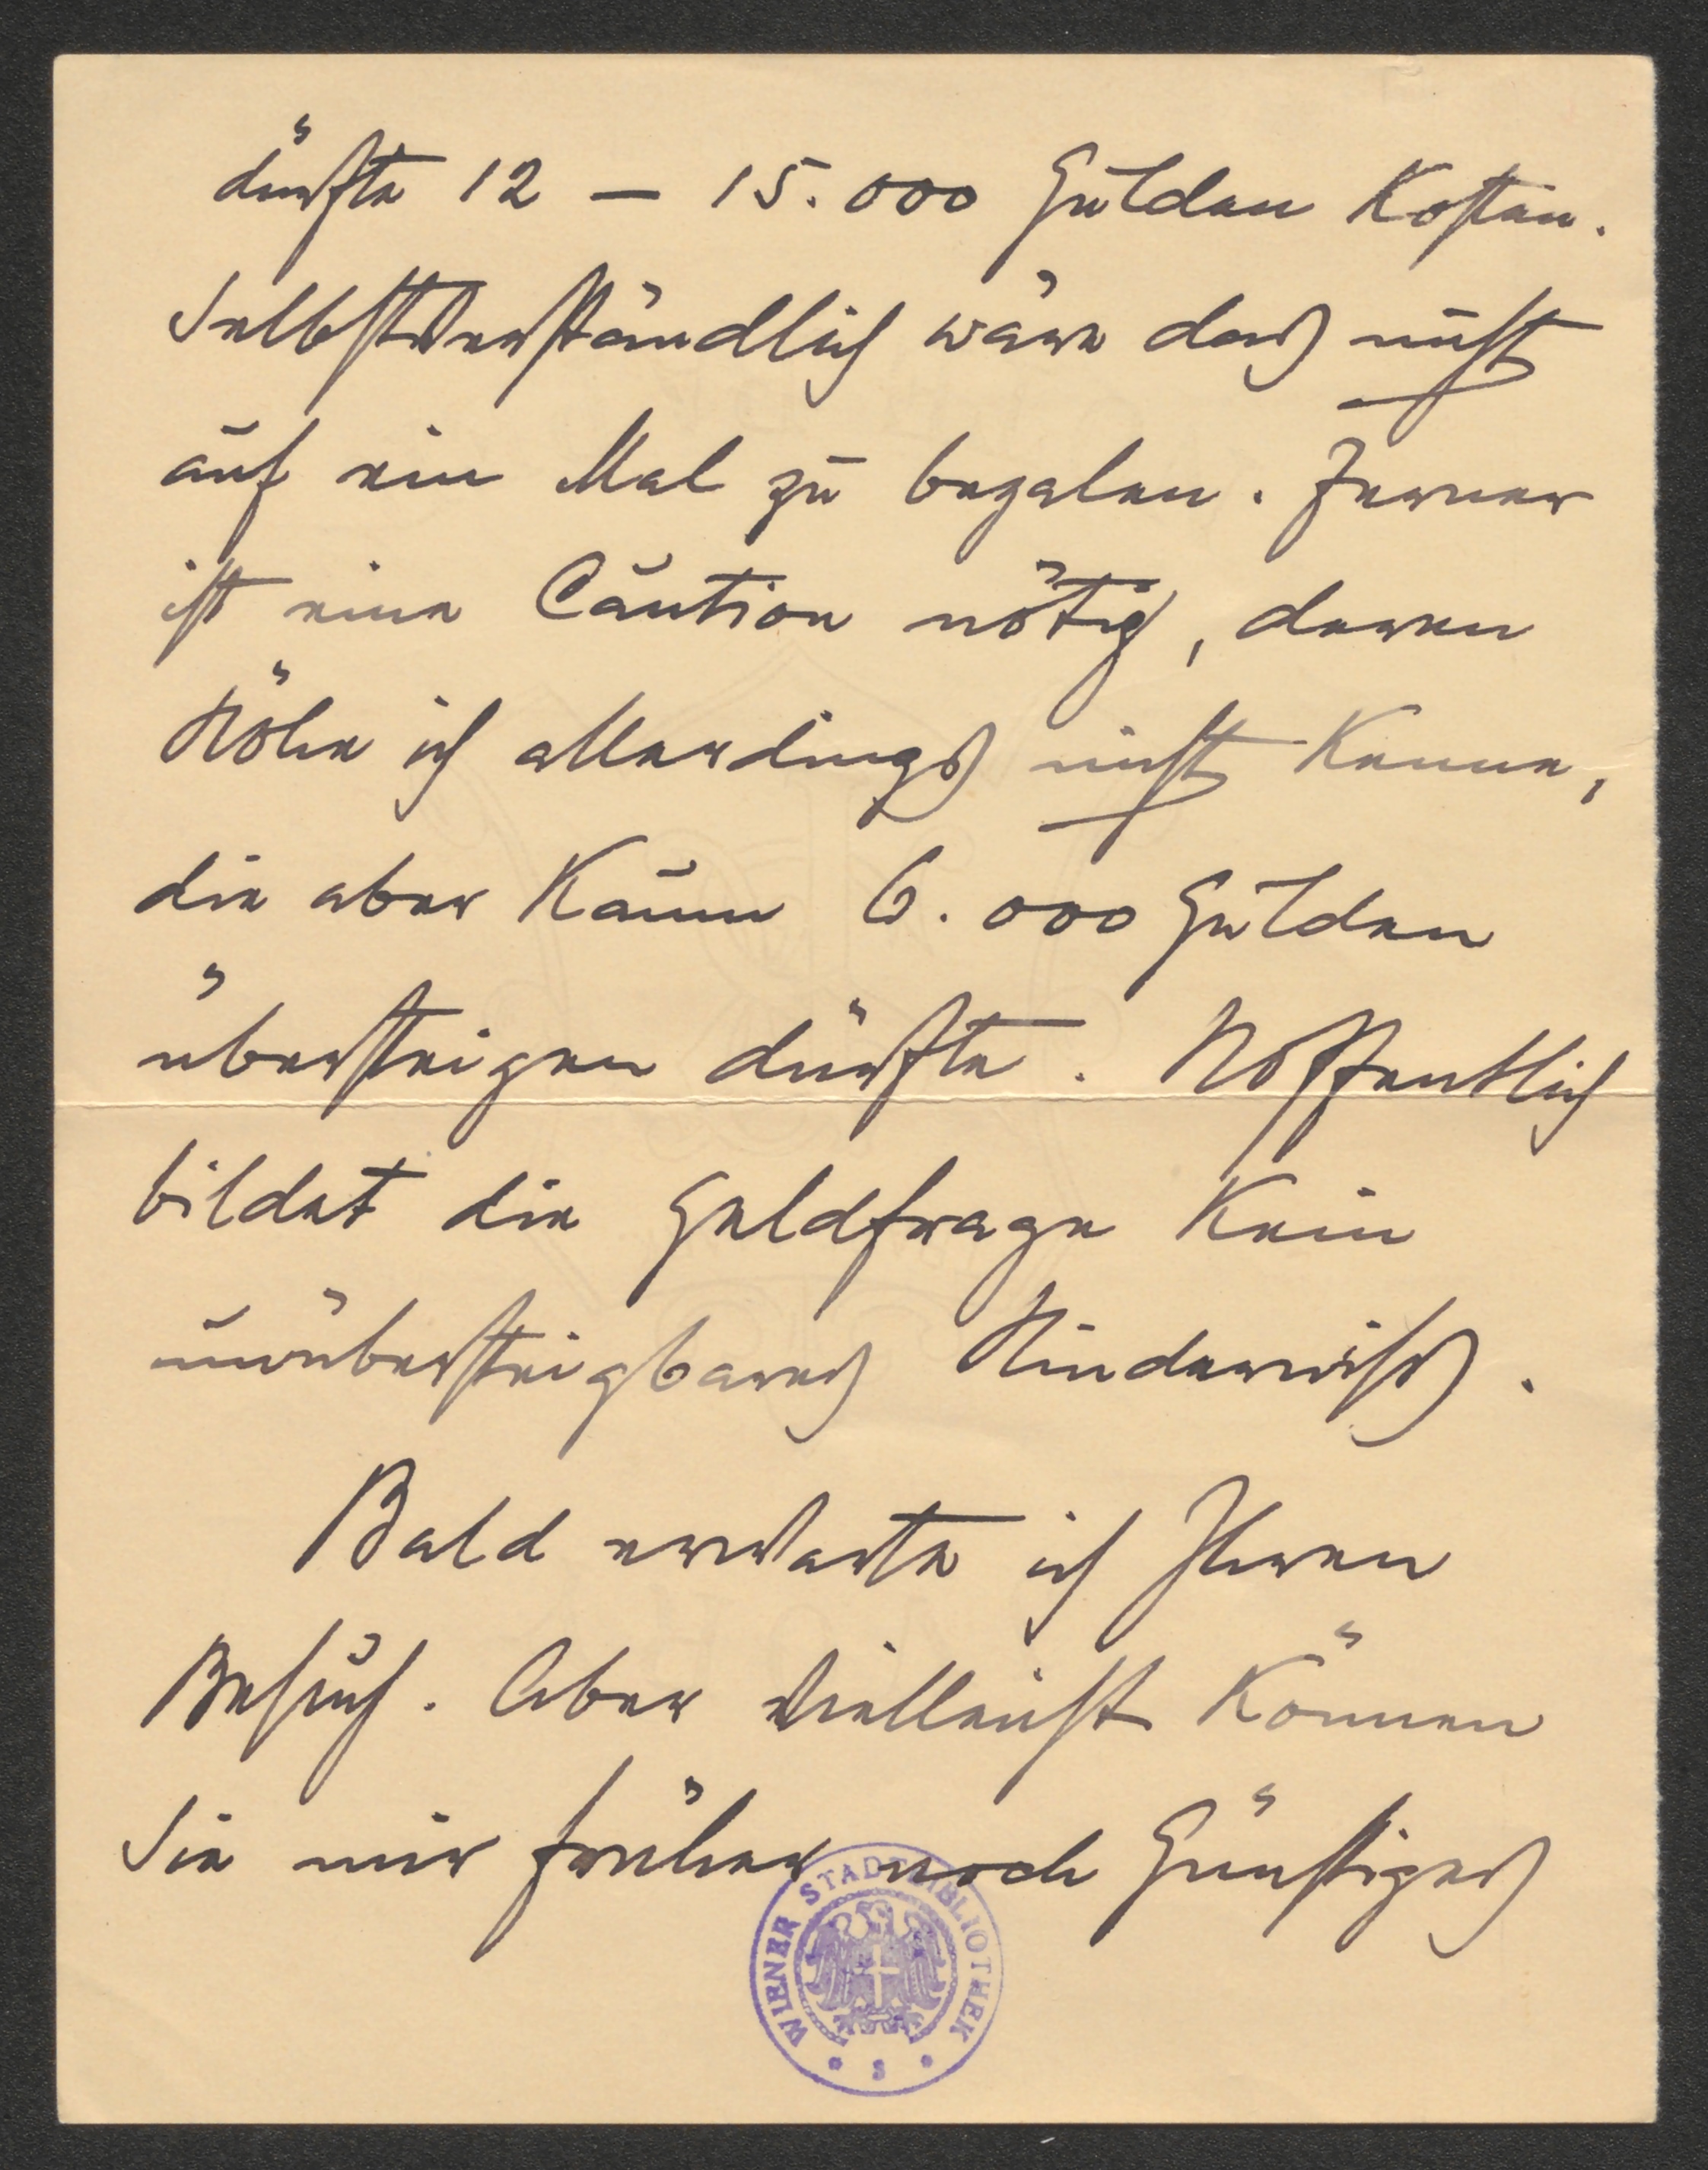 dürfte 12 — 15.000 Gulden kosten.
Selbstverständlich wäre das nicht
auf ein Mal zu bezalen. Ferner
ist eine Caution nötig, deren
Höhe ich allerdings nicht kenne,
die aber kaum 6.000 Gulden
übersteigen dürfte. Hoffentlich
bildet die Geldfrage kein
unübersteigbares Hinderniss.
Bald erwarte ich Ihren
Besuch. Aber vielleicht können
Sie mir früher noch Günstiges
WIENER STADTBIBLIOTHEK